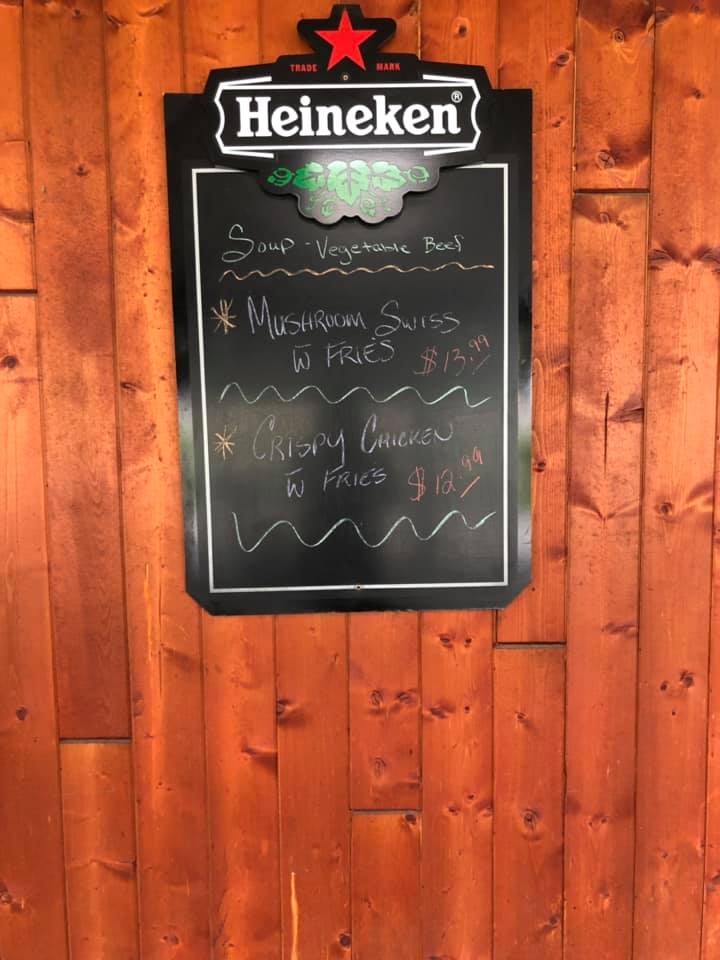 TRADE MARK
Heineken®
Soup - Vegetable Beef
Mushroom Swiss
W Fries $13.99
Crispy Chicken
W Fries $12.99